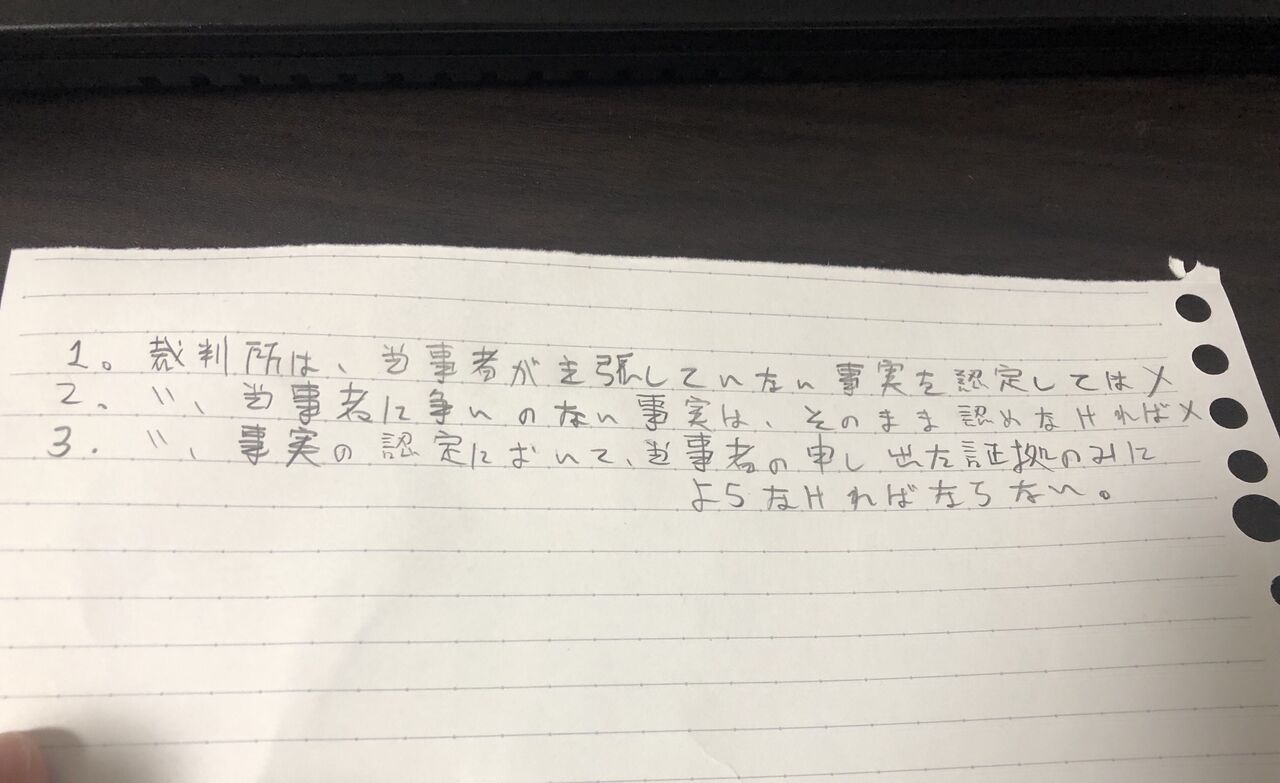 1。裁判所は、当事者が主張していない事実を認定してはメ
2、〃、当事者に争いのない事実は、そのまま認めなければメ
3.〃、事実の認定において、当事者の申し出た証拠のみに
よらなければならない。